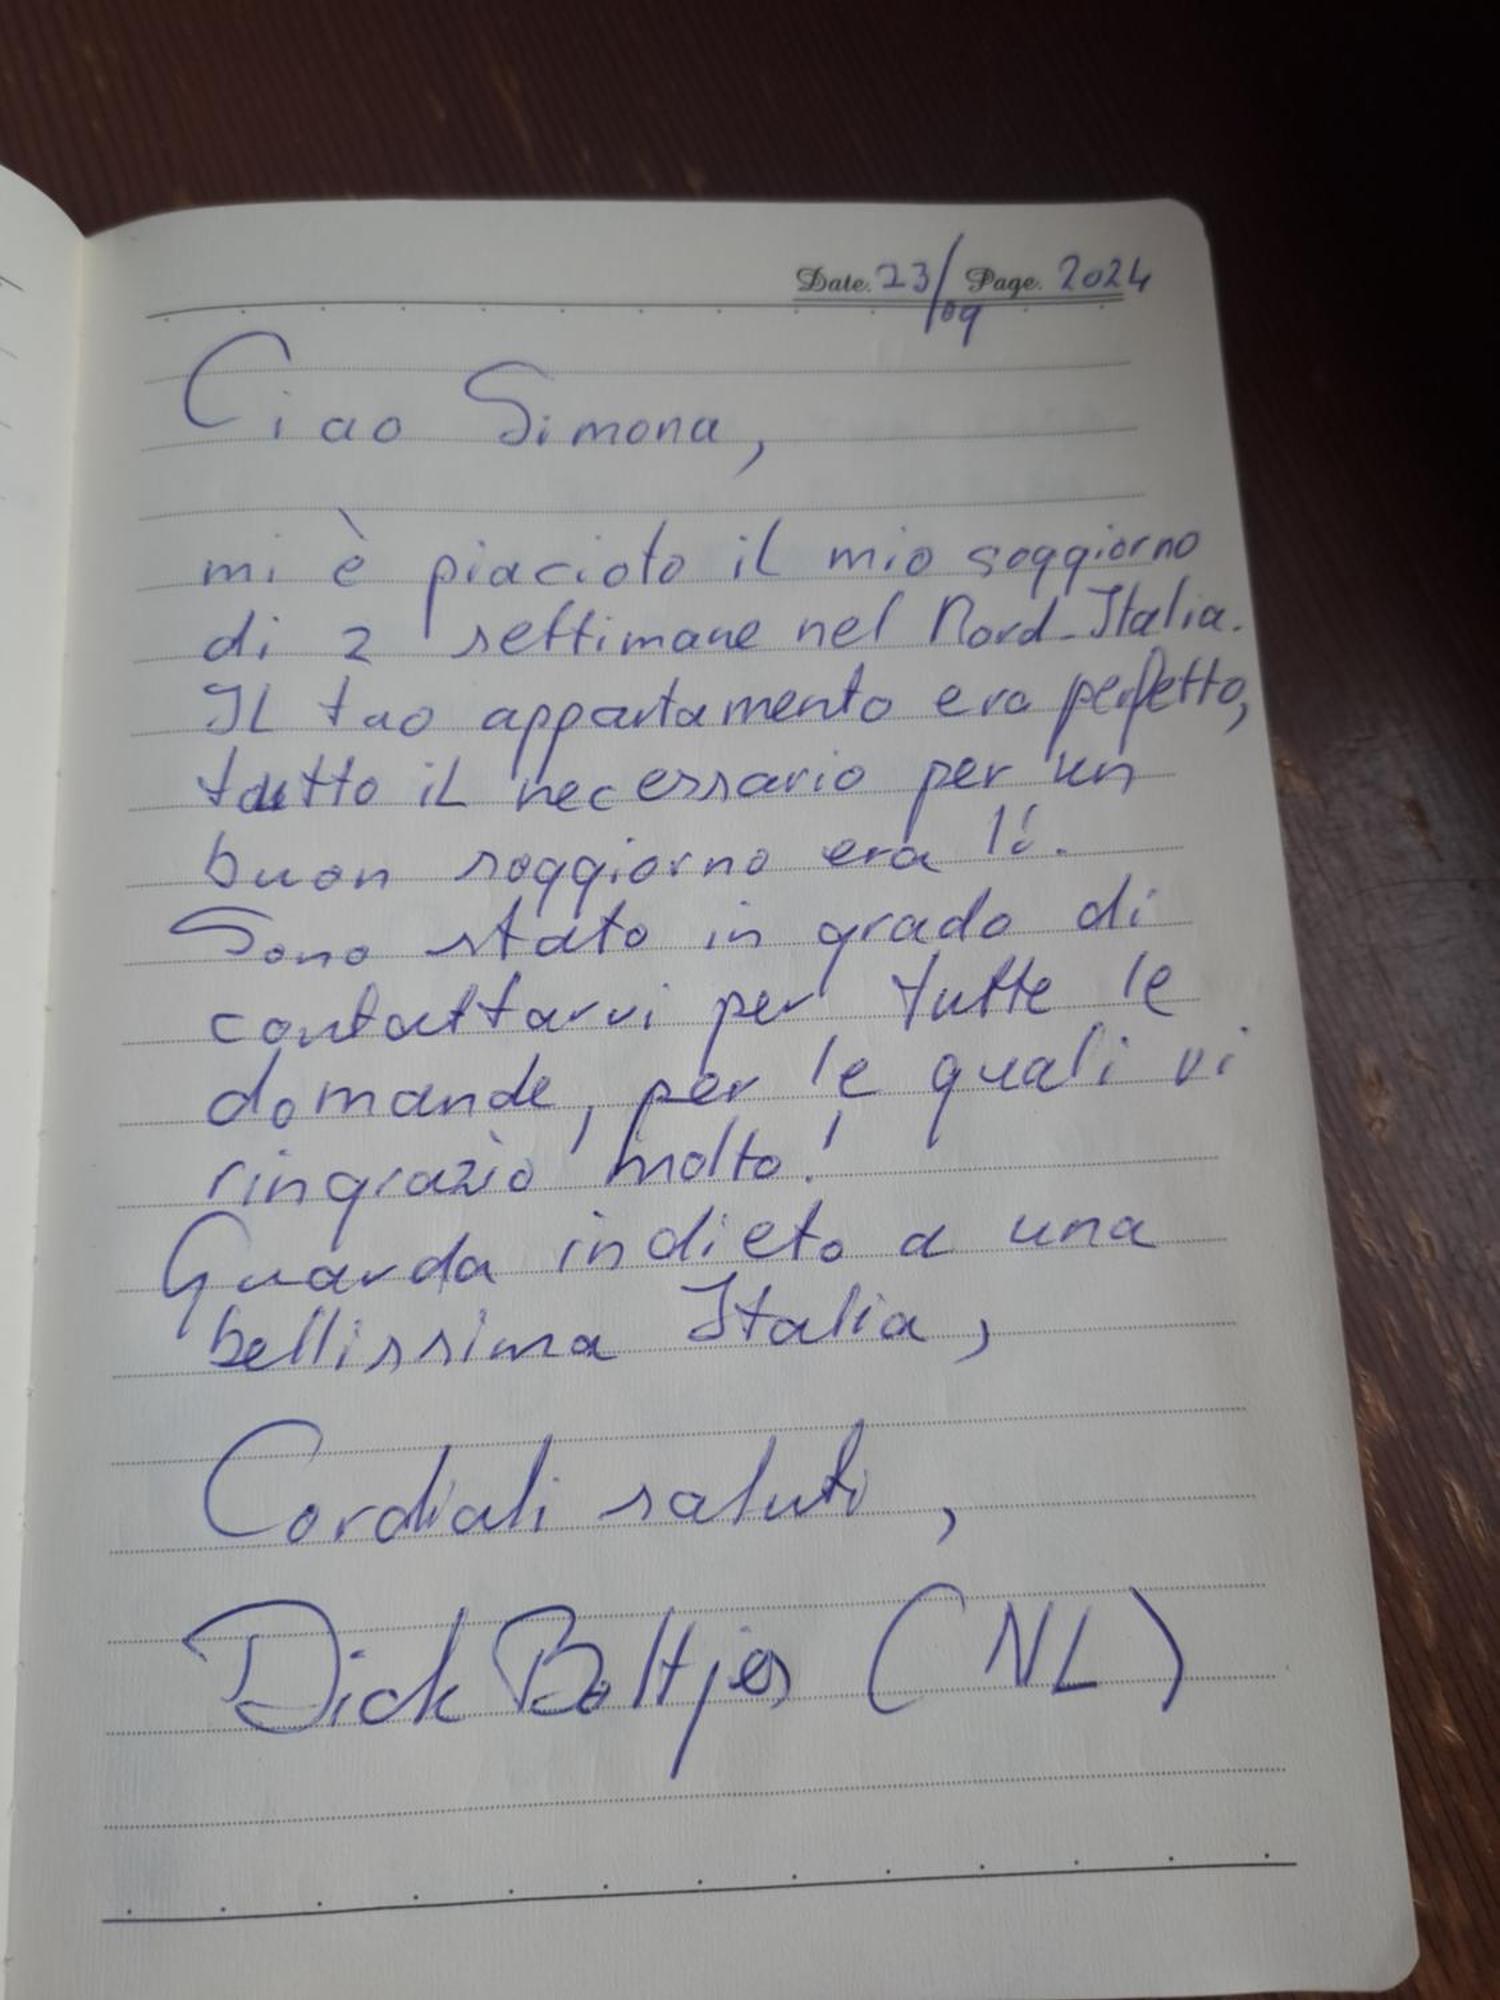 Date. 23/09 Page. 2024
Ciao Simona,
mi è piacioto il mio soggiorno
di 2 settimane nel Nord-Italia.
Il tuo appartamento era perfetto,
tutto il necessario per un
buon soggiorno era lí.
Sono stato in grado di
contattarvi per tutte le
domande, per le quali vi
ringrazio molto!
Guarda indieto a una
bellissima Italia,
Cordiali saluti,
Dick Boltjes (NL)